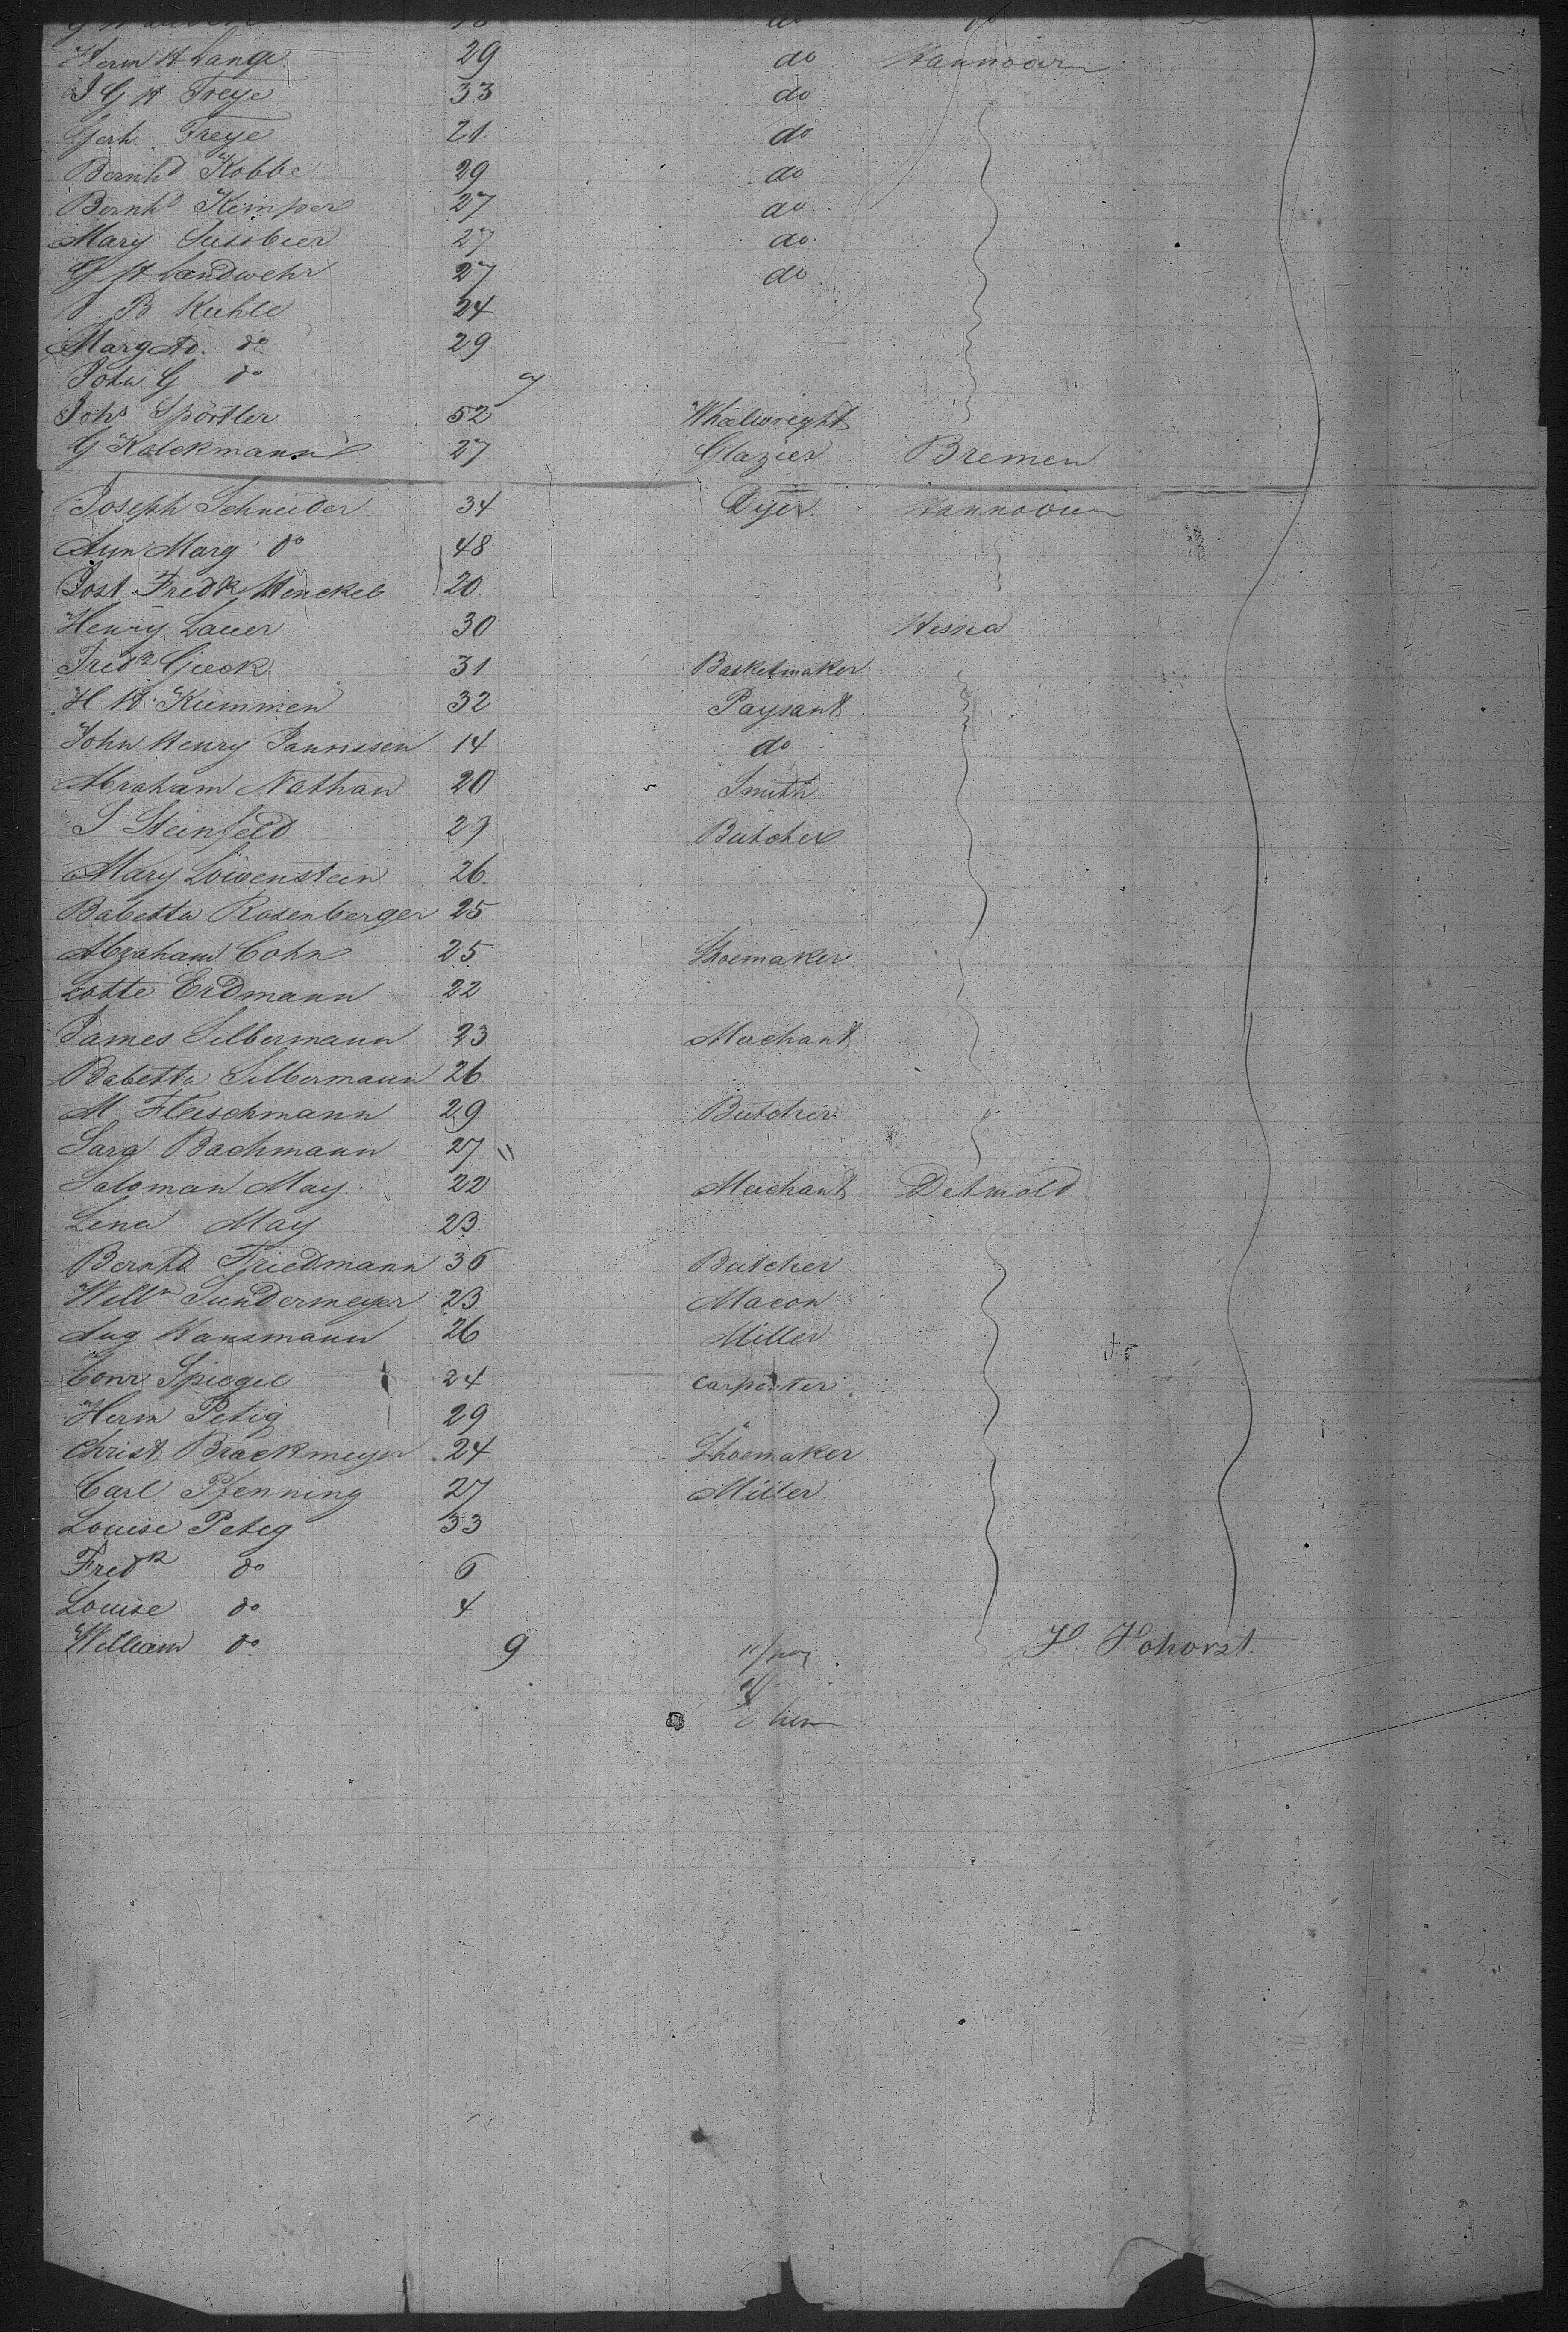 Herm H Lange 29 do Hannover
J G H Freye 33 do
Gerh Freye 21 do
Bernhd Kobbe 29 do
Bernhd Kemper 27 do
Mary 27 do
G H Landwehr 27 do
B Kuhle 24
Marg Ad. do 29
John G do 9
Johs Spörtler 52 Whelwright
G Kolckmann 27 Glazier Bremen
Joseph Schneider 34 Dyer Hannover
Ann Marg do 48
Jost Fredk Henckel 20
Henry Lauer 30 Hessia
Fredk Gieck 31 Basketmaker
H H Kümmen 32 Paysant
John Henry Jannssen 14 do
Abraham Nathan 20 Smith
S Steinfeld 29 Butcher
Mary Löwenstein 26
Babetta Rosenberger 25
Abraham Cohn 25 Shoemaker
Lotte Erdmann 22
James Silbermann 23 Merchant
Babetta Silbermann 26
M Fleischmann 29 Butcher
Sara Bachmann 27
Saloman May 22 Merchant Detmold
Lena May 23
Bernhd Friedmann 36 Butcher
Willm Sundermeyer 23 Macon
Aug Hansmann 26 Miller
Conr Spiegel 24 Carpenter
Herm Petig 29
Christ Brackmeyer 24 Shoemaker
Carl Pfenning 27 Miller
Louise Peteg 33
Fredk do 6
Louise do 4
William do 9
H. Hohorst.